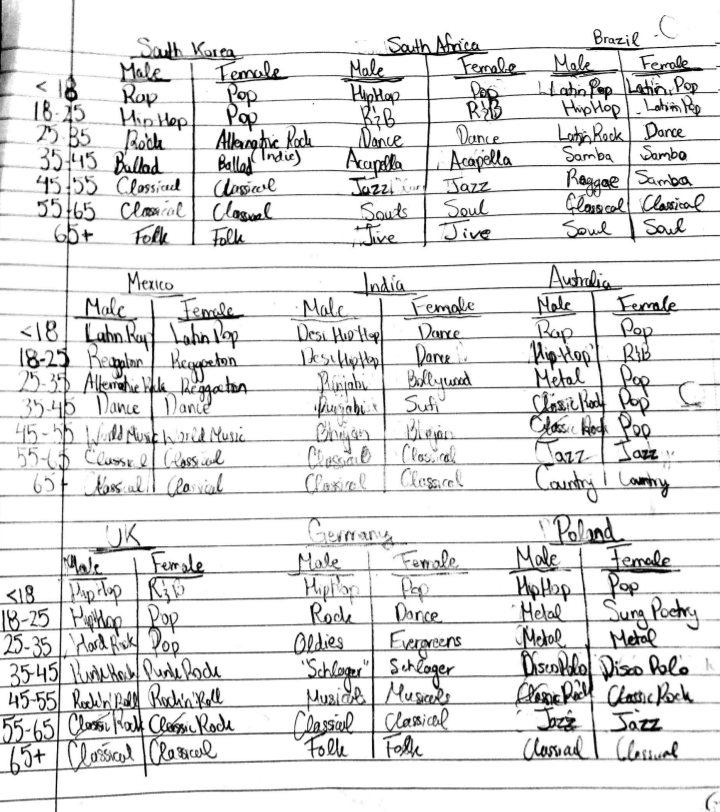 South Korea South Africa Brazil
Male Female Male Female Male Female
<18 Rap Pop HipHop Pop Latin Pop Latin Pop
18-25 Hip Hop Pop R&B R&B HipHop Latin Pop
25-35 Rock Alternative Rock (Indie) Dance Dance Latin Rock Dance
35-45 Ballad Ballad Acapella Acapella Samba Samba
45-55 Classical Classical Jazz Jazz Reggae Samba
55-65 Classical Classical Souls Soul Classical Classical
65+ Folk Folk Jive Jive Soul Soul
Mexico India Australia
Male Female Male Female Male Female
<18 Latin Rap Latin Pop Desi Hip Hop Dance Rap Pop
18-25 Reggaton Reggaeton Desi Hip Hop Dance Hip Hop R&B
25-35 Alternative Rock Reggaeton Punjabi Bollywood Metal Pop
35-45 Dance Dance Punjabi Sufi Classic Rock Pop
45-55 World Music World Music Bhajan Bhajan Classic Rock Pop
55-65 Classical Classical Classical Classical Jazz Jazz
65+ Classical Classical Classical Classical Country Country
UK Germany Poland
Male Female Male Female Male Female
<18 HipHop R&B HipHop Pop HipHop Pop
18-25 HipHop Pop Rock Dance Metal Sung Poetry
25-35 Hard Rock Pop Oldies Evergreens Metal Metal
35-45 Punk Rock Punk Rock "Schlager" Schlager Disco Polo Disco Polo
45-55 Rock'n'Roll Rock'n'Roll Musicals Musicals Classic Rock Classic Rock
55-65 Classic Rock Classic Rock Classical Classical Jazz Jazz
65+ Classical Classical Folk Folk Classical Classical